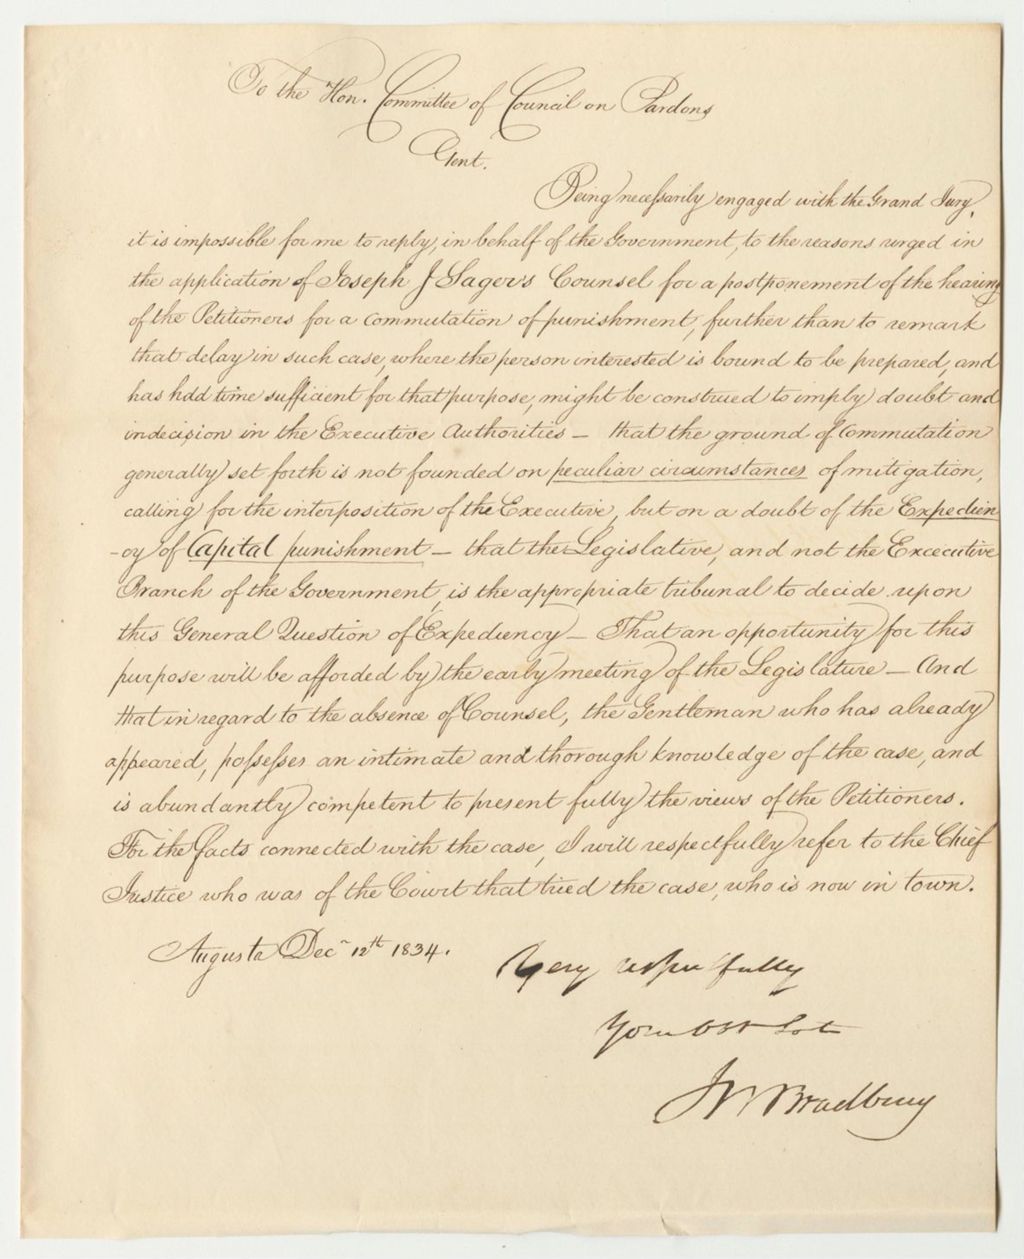 To the Hon. Committee of Council on Pardons
Gent.
Being necessarily engaged with the Grand Jury,
it is impossible for me to reply, in behalf of the Government, to the reasons urged in
the application of Joseph J Sager's Counsel for a postponement of the hearing
of the Petitioners for a commutation of punishment, further than to remark
that delay in such case, where the person interested is bound to be prepared, and
has had time sufficient for that purpose, might be construed to imply doubt and
indecision in the Executive Authorities — that the ground of Commutation
generally set forth is not founded on peculiar circumstances of mitigation,
calling for the interposition of the Executive, but on a doubt of the Expedien
-cy of Capital punishment — that the Legislative, and not the Excecutive
Branch of the Government, is the appropriate tribunal to decide upon
this General Question of Expediency — That an opportunity for this
purpose will be afforded by the early meeting of the Legislature — And
that in regard to the absence of Counsel, the Gentleman who has already
appeared, possesses an intimate and thorough knowledge of the case, and
is abundantly competent to present fully the views of the Petitioners.
For the facts connected with the case, I will respectfully refer to the Chief
Justice who was of the Court that tried the case, who is now in town.
Augusta Decr 12th 1834.
Very respectfully
Your Obt Sot
JW Bradbury